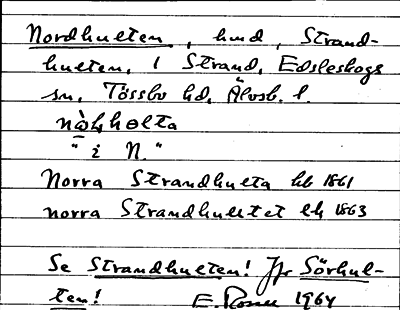 Nordhulten, hmd, Strand-
hulten, i Strand, Edsleskogs
sn, Tössbo hd, Älvsb. l.
nɷ̀ḷhɵlta
"i N."
Norra Strandhulta hb 1861
norra Strandhultet lh 1863
Se Strandhulten! Jfr Sörhul-
ten! E. 1964